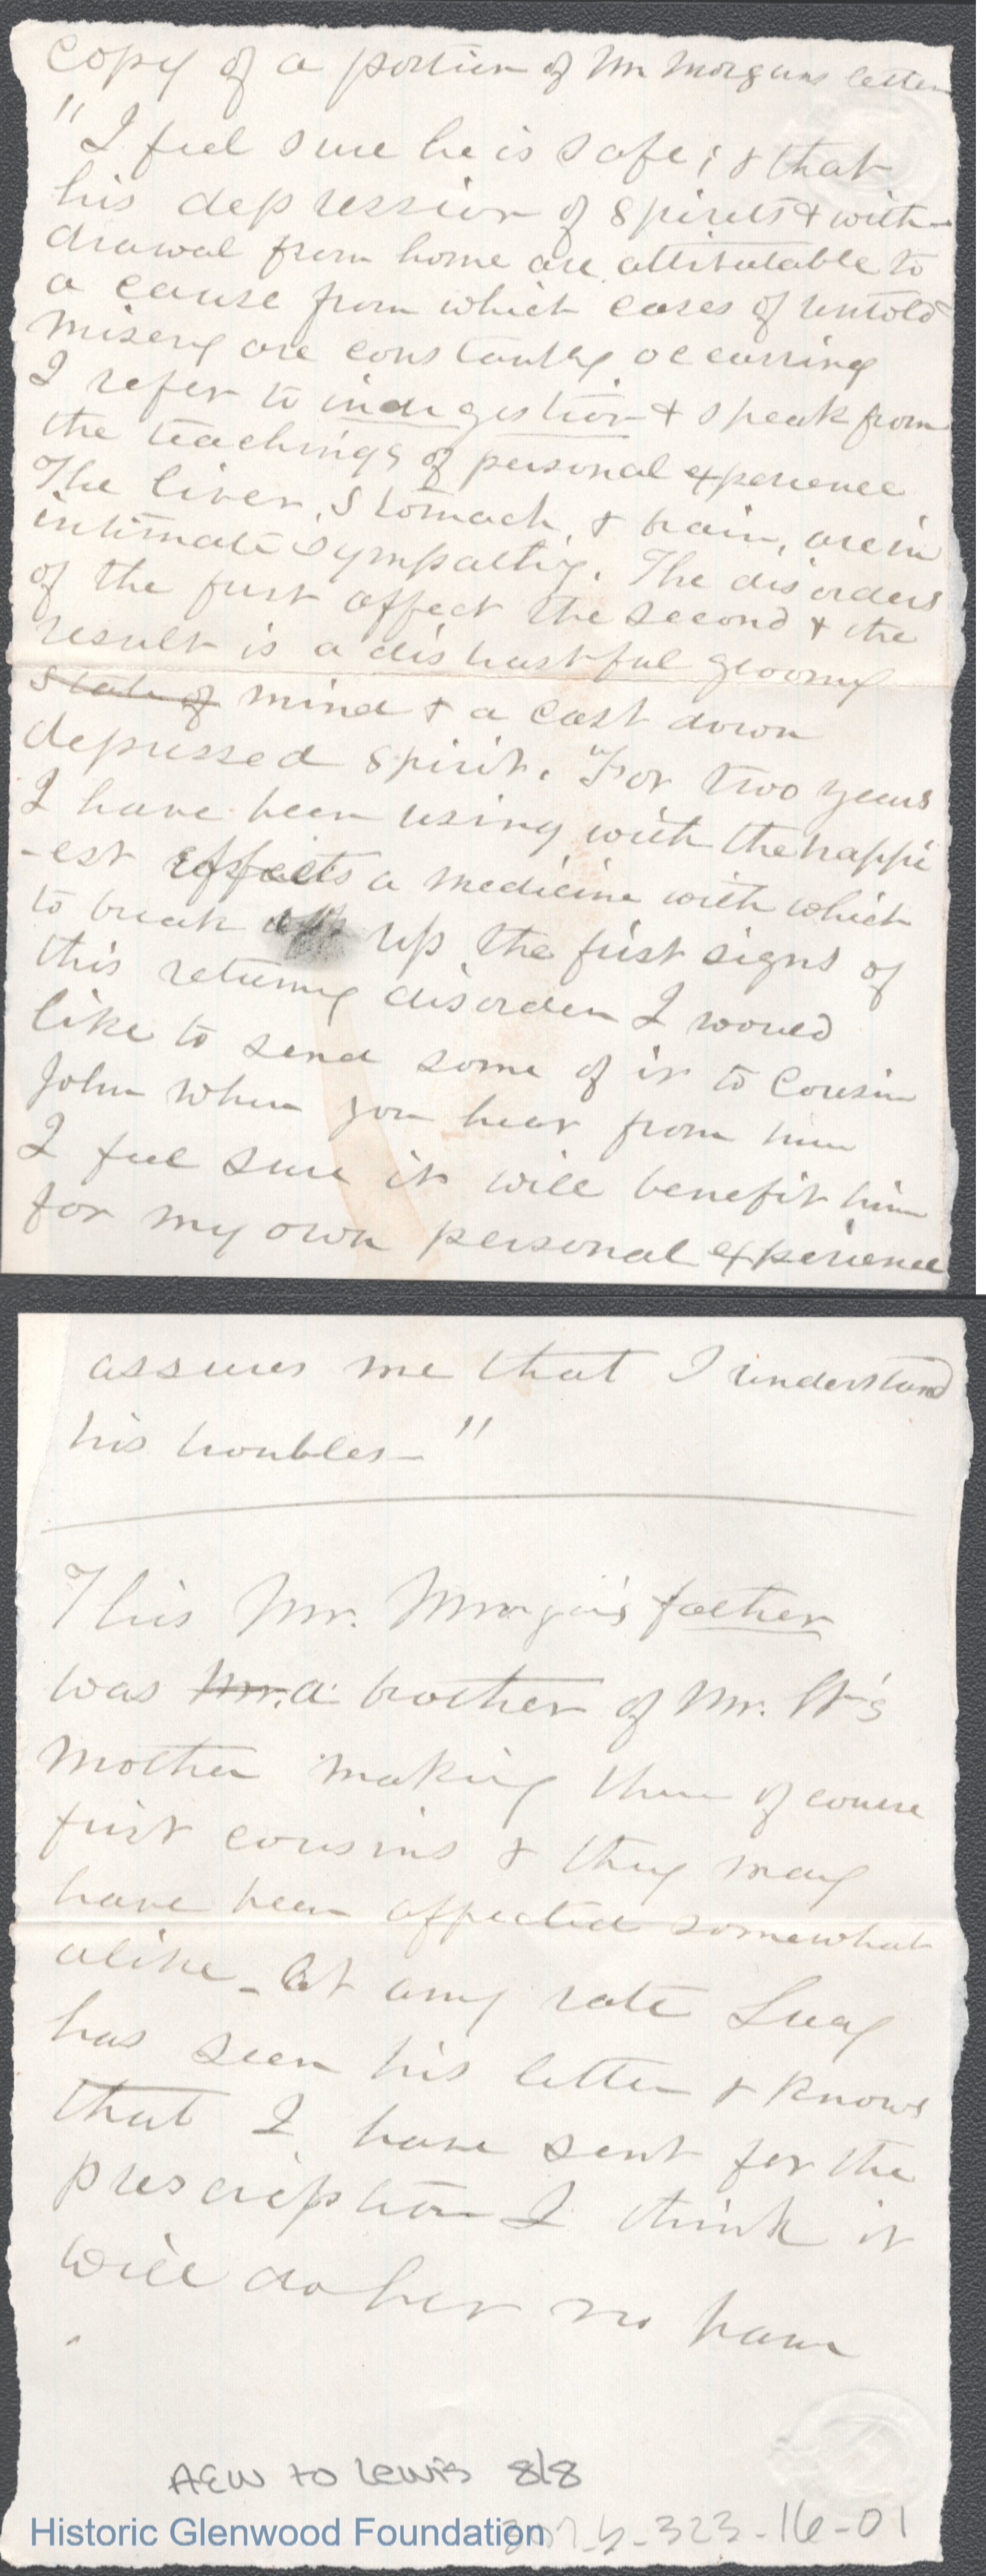 Copy of a portion of Mr Morgans letter
"I feel sure he is safe; & that
his depression of spirits & with-
drawal from home are attributable to
a cause from which cases of untold
misery are constantly occurring
I refer to indigestion & speak from
the teachings of personal experience
The liver, stomach, & brain, are in
intimate sympathy. The disorders
of the first affect the second & the
result is a distrustful gloomy
state of mind & a cast down
depressed spirit. "For two years
I have been using with the happi
-est effects a medicine with which
to break up the first signs of
this returning disorder I would
like to send some of it to Cousin
John when you hear from him
I feel sure it will benefit him
for my own personal experience
assures me that I understand
his troubles—"
This Mr. Morgan's father
was Mr. a brother of Mr. W's
mother making them of course
first cousins & they may
have been affected somewhat
alike - At any rate Lucy
has seen his letter & knows
that I have sent for the
prescription I think it
will do her no harm
AEW to Lewis 8/8
Historic Glenwood Foundation
323-16-01